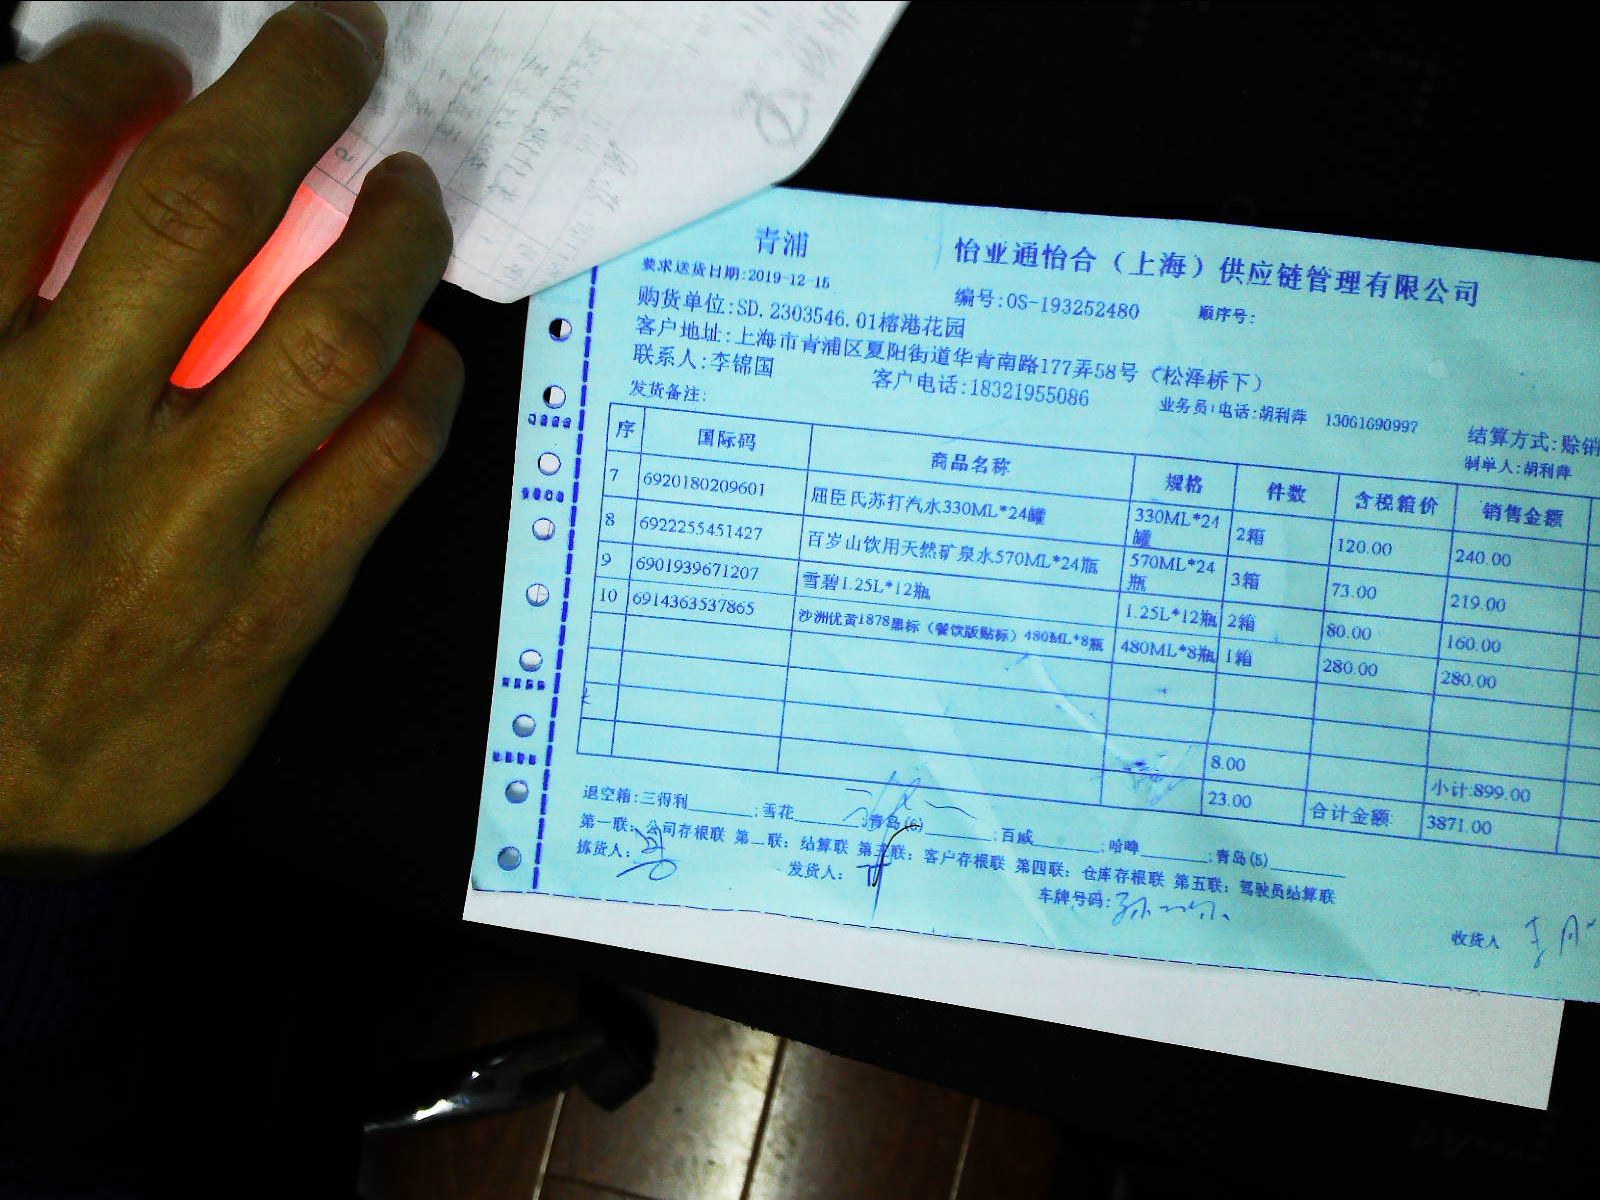 青浦
怡亚通怡合（上海）供应链管理有限公司
要求送货日期:2019-12-15
编号:OS-193252480
顺序号:
购货单位:SD.2303546.01榕港花园
客户地址:上海市青浦区夏阳街道华青南路177弄58号（松泽桥下）
联系人:李锦国
客户电话:18321955086
业务员|电话:胡利萍 13061690997
结算方式:赊销
发货备注:
制单人:胡利萍
序 国际码 商品名称 规格 件数 含税箱价 销售金额
7 6920180209601 屈臣氏苏打汽水330ML*24罐 330ML*24罐 2箱 120.00 240.00
8 6922255451427 百岁山饮用天然矿泉水570ML*24瓶 570ML*24瓶 3箱 73.00 219.00
9 6901939671207 雪碧1.25L*12瓶 1.25L*12瓶 2箱 80.00 160.00
10 6914363537865 沙洲优黄1878黑标（餐饮版贴标）480ML*8瓶 480ML*8瓶 1箱 280.00 280.00
8.00 小计:899.00
23.00 合计金额: 3871.00
退空箱:三得利______;雪花______;青岛(6)______;百威______;哈啤______;青岛(5)______
第一联：公司存根联 第二联：结算联 第三联：客户存根联 第四联：仓库存根联 第五联：驾驶员结算联
拣货人:
发货人:
车牌号码:
收货人